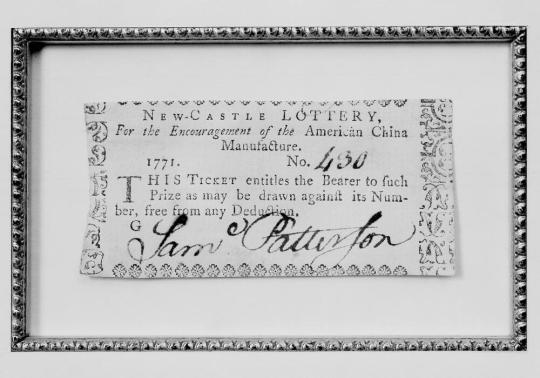 NEW-CASTLE LOTTERY,
For the Encouragement of the American China
Manufacture.
1771. No. 430
THIS TICKET entitles the Bearer to ſuch
Prize as may be drawn againſt its Num-
ber, free from any Deduction.
G Sam.l Patterſon